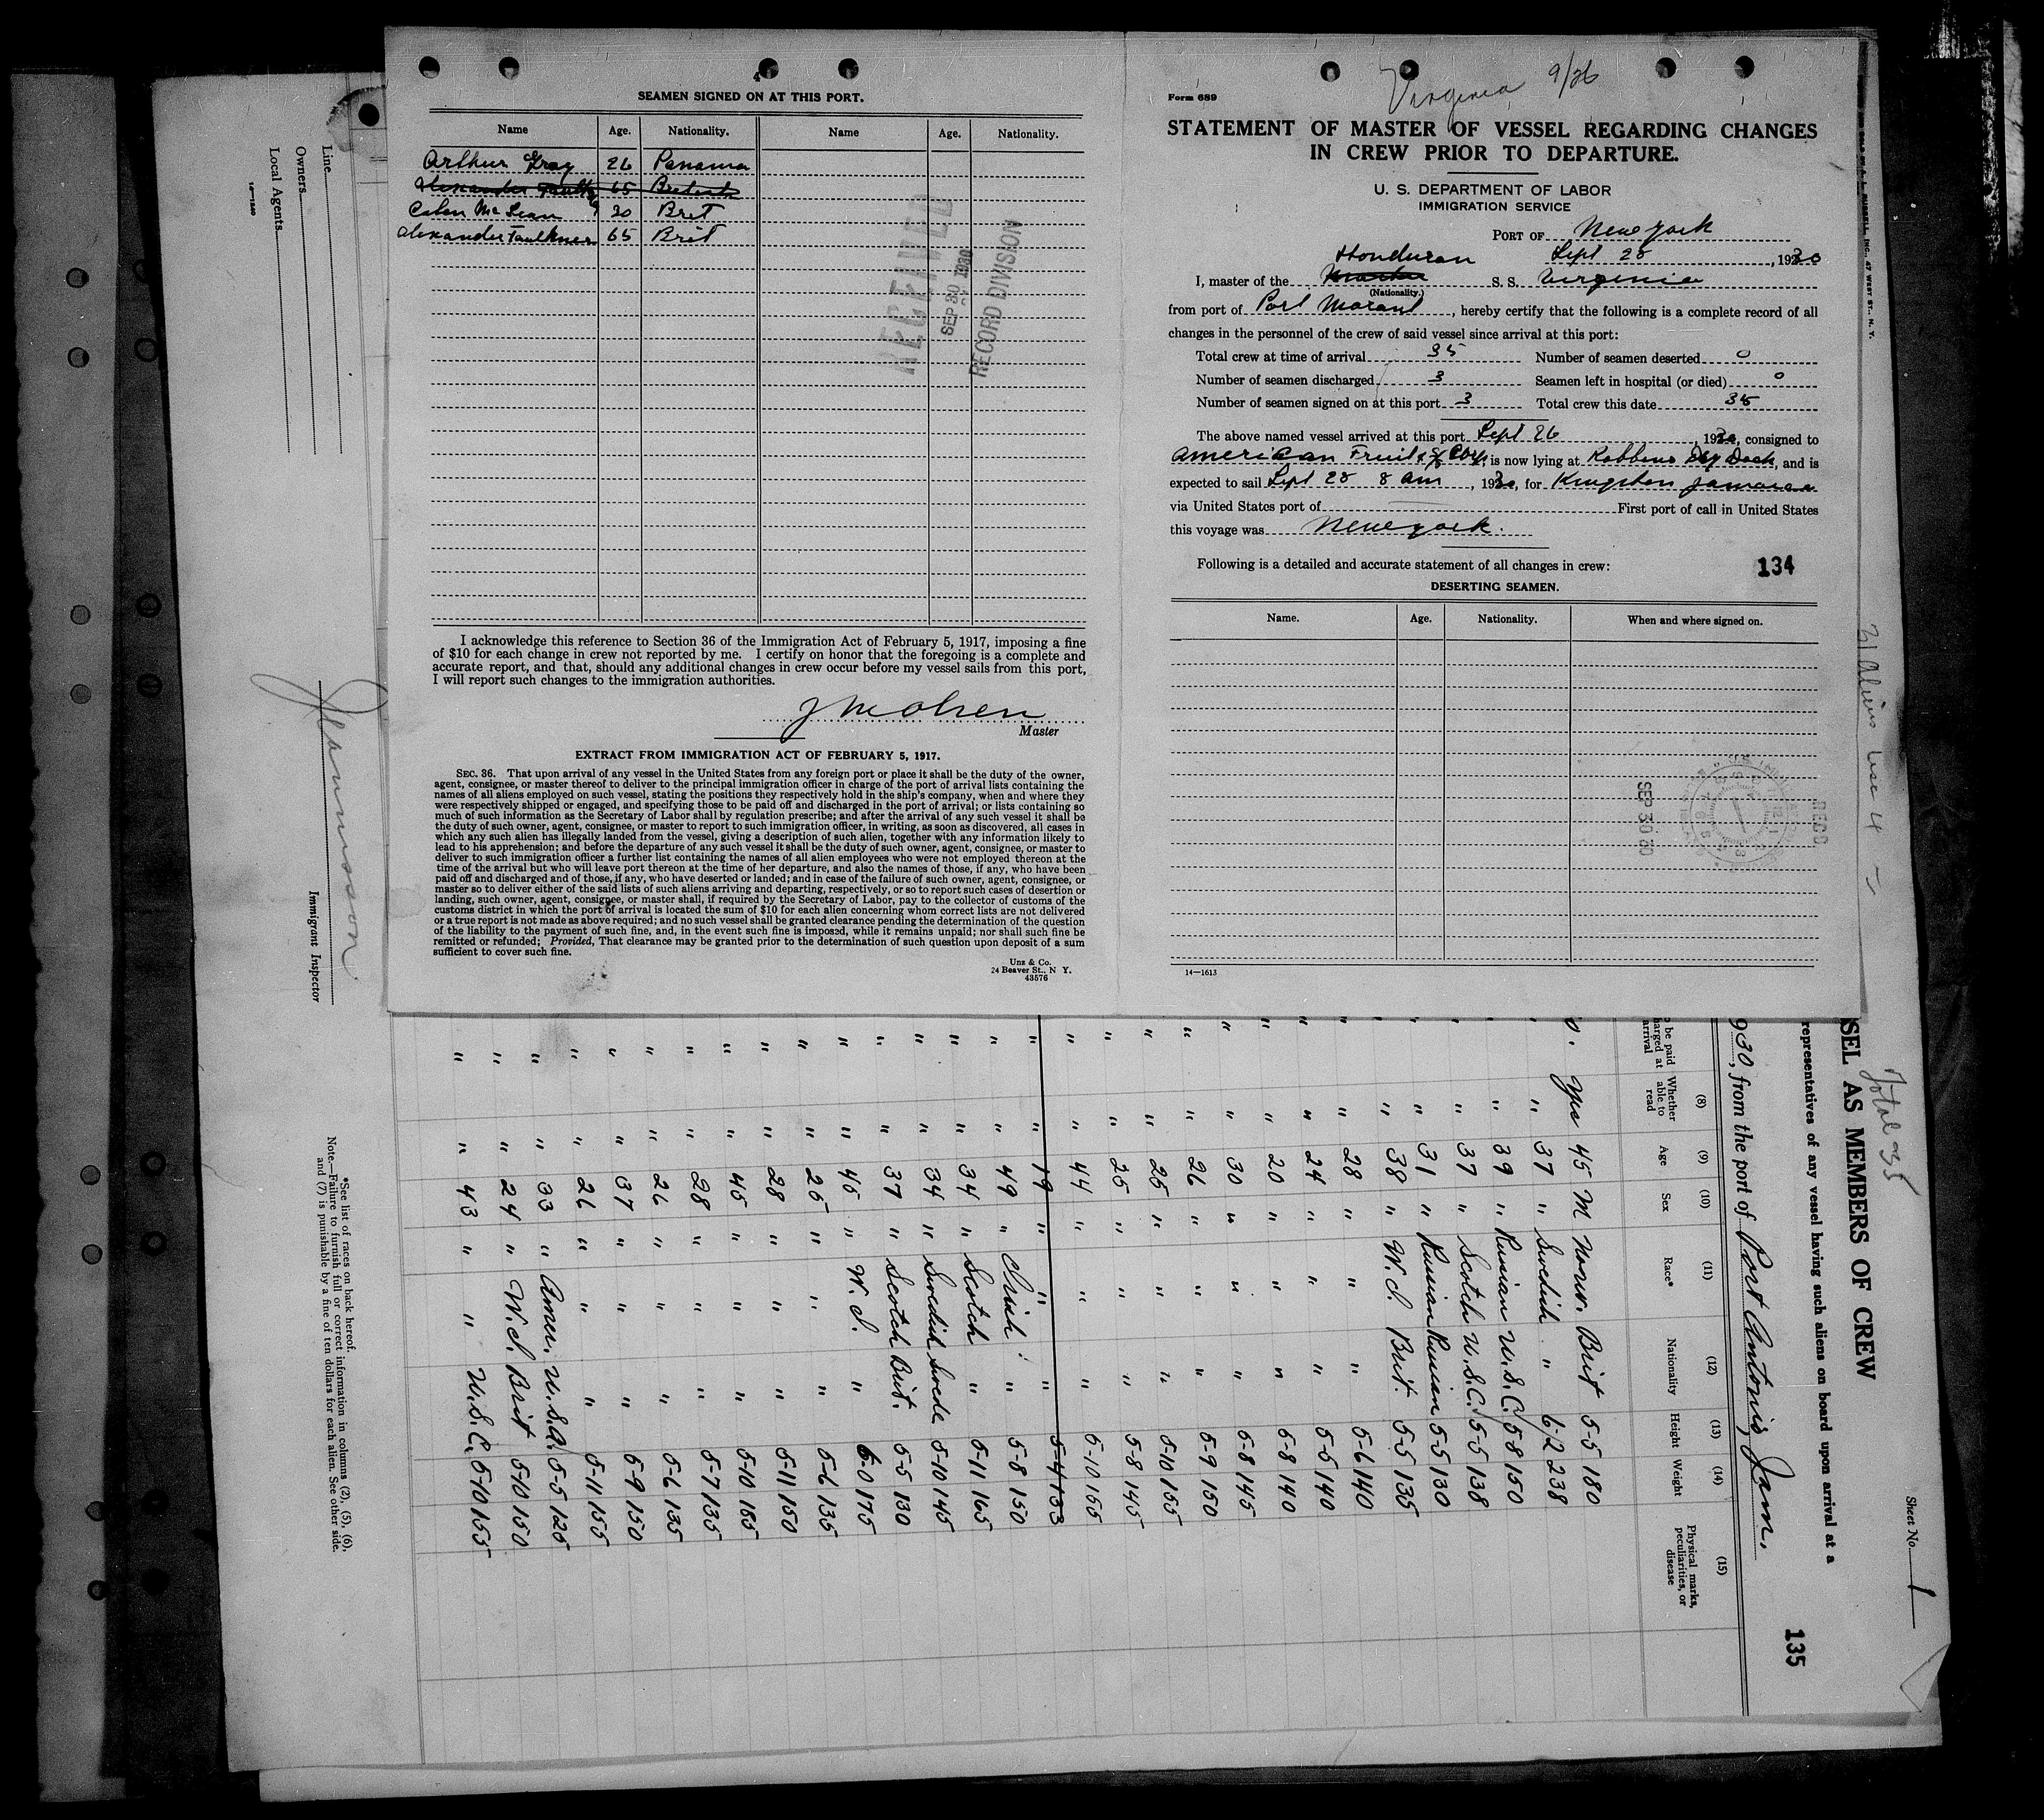 4
SEAMEN SIGNED ON AT THIS PORT.
Name Age. Nationality. Name Age. Nationality.
Arthur Gray 26 Panama
Alexander Faulk 65 British
McLean 20 Brit
Alexander Faulkner 65 Brit
RECEIVED
SEP 30 1930
RECORD DIVISION
I acknowledge this reference to Section 36 of the Immigration Act of February 5, 1917, imposing a fine
of $10 for each change in crew not reported by me. I certify on honor that the foregoing is a complete and
accurate report, and that, should any additional changes in crew occur before my vessel sails from this port,
I will report such changes to the immigration authorities.
J M Olsen
Master
EXTRACT FROM IMMIGRATION ACT OF FEBRUARY 5, 1917.
SEC. 36. That upon arrival of any vessel in the United States from any foreign port or place it shall be the duty of the owner,
agent, consignee, or master thereof to deliver to the principal immigration officer in charge of the port of arrival lists containing the
names of all aliens employed on such vessel, stating the positions they respectively hold in the ship's company, when and where they
were respectively shipped or engaged, and specifying those to be paid off and discharged in the port of arrival; or lists containing so
much of such information as the Secretary of Labor shall by regulation prescribe; and after the arrival of any such vessel it shall be
the duty of such owner, agent, consignee, or master to report to such immigration officer, in writing, as soon as discovered, all cases in
which any such alien has illegally landed from the vessel, giving a description of such alien, together with any information likely to
lead to his apprehension; and before the departure of any such vessel it shall be the duty of such owner, agent, consignee, or master to
deliver to such immigration officer a further list containing the names of all alien employees who were not employed thereon at the
time of the arrival but who will leave port thereon at the time of her departure, and also the names of those, if any, who have been
paid off and discharged and of those, if any, who have deserted or landed; and in case of the failure of such owner, agent, consignee, or
master so to deliver either of the said lists of such aliens arriving and departing, respectively, or so to report such cases of desertion or
landing, such owner, agent, consignee, or master shall, if required by the Secretary of Labor, pay to the collector of customs of the
customs district in which the port of arrival is located the sum of $10 for each alien concerning whom correct lists are not delivered
or a true report is not made as above required; and no such vessel shall be granted clearance pending the determination of the question
of the liability to the payment of such fine, and, in the event such fine is imposed, while it remains unpaid; nor shall such fine be
remitted or refunded; Provided, That clearance may be granted prior to the determination of such question upon deposit of a sum
sufficient to cover such fine.
Unz & Co.
24 Beaver St., N Y.
43576
Virginia 9/26
Form 689
STATEMENT OF MASTER OF VESSEL REGARDING CHANGES
IN CREW PRIOR TO DEPARTURE.
U. S. DEPARTMENT OF LABOR
IMMIGRATION SERVICE
PORT OF New York
Honduran Sept 28, 1930
I, master of the S. S. Virginia
(Nationality.)
from port of Port Morant, hereby certify that the following is a complete record of all
changes in the personnel of the crew of said vessel since arrival at this port:
Total crew at time of arrival 35 Number of seamen deserted 0
Number of seamen discharged 3 Seamen left in hospital (or died) 0
Number of seamen signed on at this port 3 Total crew this date 35
The above named vessel arrived at this port Sept 26, 1930, consigned to
American Fruit & SS Corp, is now lying at Robbins Dry Dock, and is
expected to sail Sept 28 8 am, 1930, for Kingston Jamaica
via United States port of First port of call in United States
this voyage was New York.
Following is a detailed and accurate statement of all changes in crew: 134
DESERTING SEAMEN.
Name. Age. Nationality. When and where signed on.
REC'D
SEP 30 30
14—1613
Line
Owners
Local Agents
14—1240
Immigrant Inspector
*See list of races on back hereof.
Note.—Failure to furnish full or correct information in columns (2), (5), (6),
and (7) is punishable by a fine of ten dollars for each alien. See other side.
47 WEST ST., N. Y.
31 aliens
Total 35
Sheet No. 1
135
SEL AS MEMBERS OF CREW
representatives of any vessel having such aliens on board upon arrival at a
930, from the port of Port Antonio, Jam.
(8) (9) (10) (11) (12) (13) (14) (15)
be paid
arged at
arrival
Whether able to read Age Sex Race* Nationality Height Weight Physical marks, peculiarities, or disease
Yes 45 M Norw. Brit 5-5 180
" 37 " Swedish " 6-2 238
" 39 " Russian U.S.C. 5-8 150
" 37 " Scotch U.S.C. 5-5 138
" 31 " Russian Russian 5-5 130
" 38 " W.I. Brit. 5-5 135
" 28 " " " 5-6 140
" 24 " " " 5-5 140
" 20 " " " 5-8 140
" 30 " " " 5-8 145
" 26 " " " 5-9 150
" 25 " " " 5-10 155
" 25 " " " 5-8 145
" 44 " " " 5-10 155
" 19 " " " 5-4 133
" 49 " Irish " 5-8 150
" 34 " Scotch " 5-11 165
" 34 " Swedish Swede 5-10 145
" 37 " Scotch Brit. 5-5 130
" 45 " W.I. " 6-0 175
" 25 " " " 5-6 135
" 28 " " " 5-11 150
" 45 " " " 5-10 185
" 28 " " " 5-7 135
" 26 " " " 5-6 135
" 37 " " " 5-9 150
" 26 " " " 5-11 155
" 33 " Amer. U.S.A. 5-5 125
" 24 " W.I. Brit 5-10 150
" 43 " " U.S.C. 5-10 155